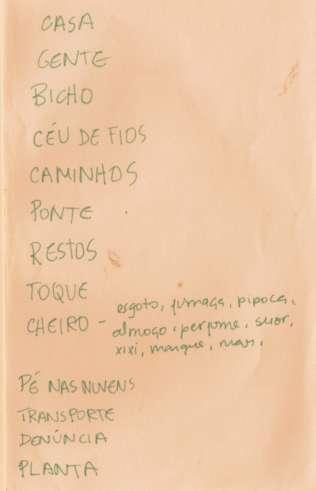 CASA
GENTE
BICHO
CÉU DE FIOS
CAMINHOS
PONTE
RESTOS
TOQUE
CHEIRO - esgoto, fumaça, pipoca,
almoço, perfume, suor,
xixi, mangue, mar.
PÉ NAS NUVENS
TRANSPORTE
DENÚNCIA
PLANTA